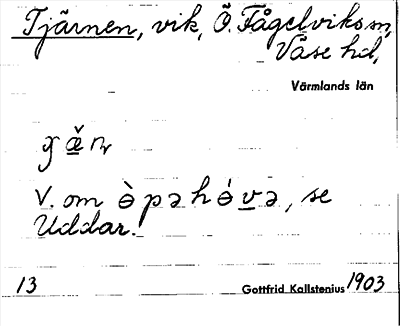 Tjärnen, vik, Ö. Fågelviks sn,
Väse hd,
Värmlands län
V. om
se
Uddar.
13
Gottfrid Kallstenius 1903